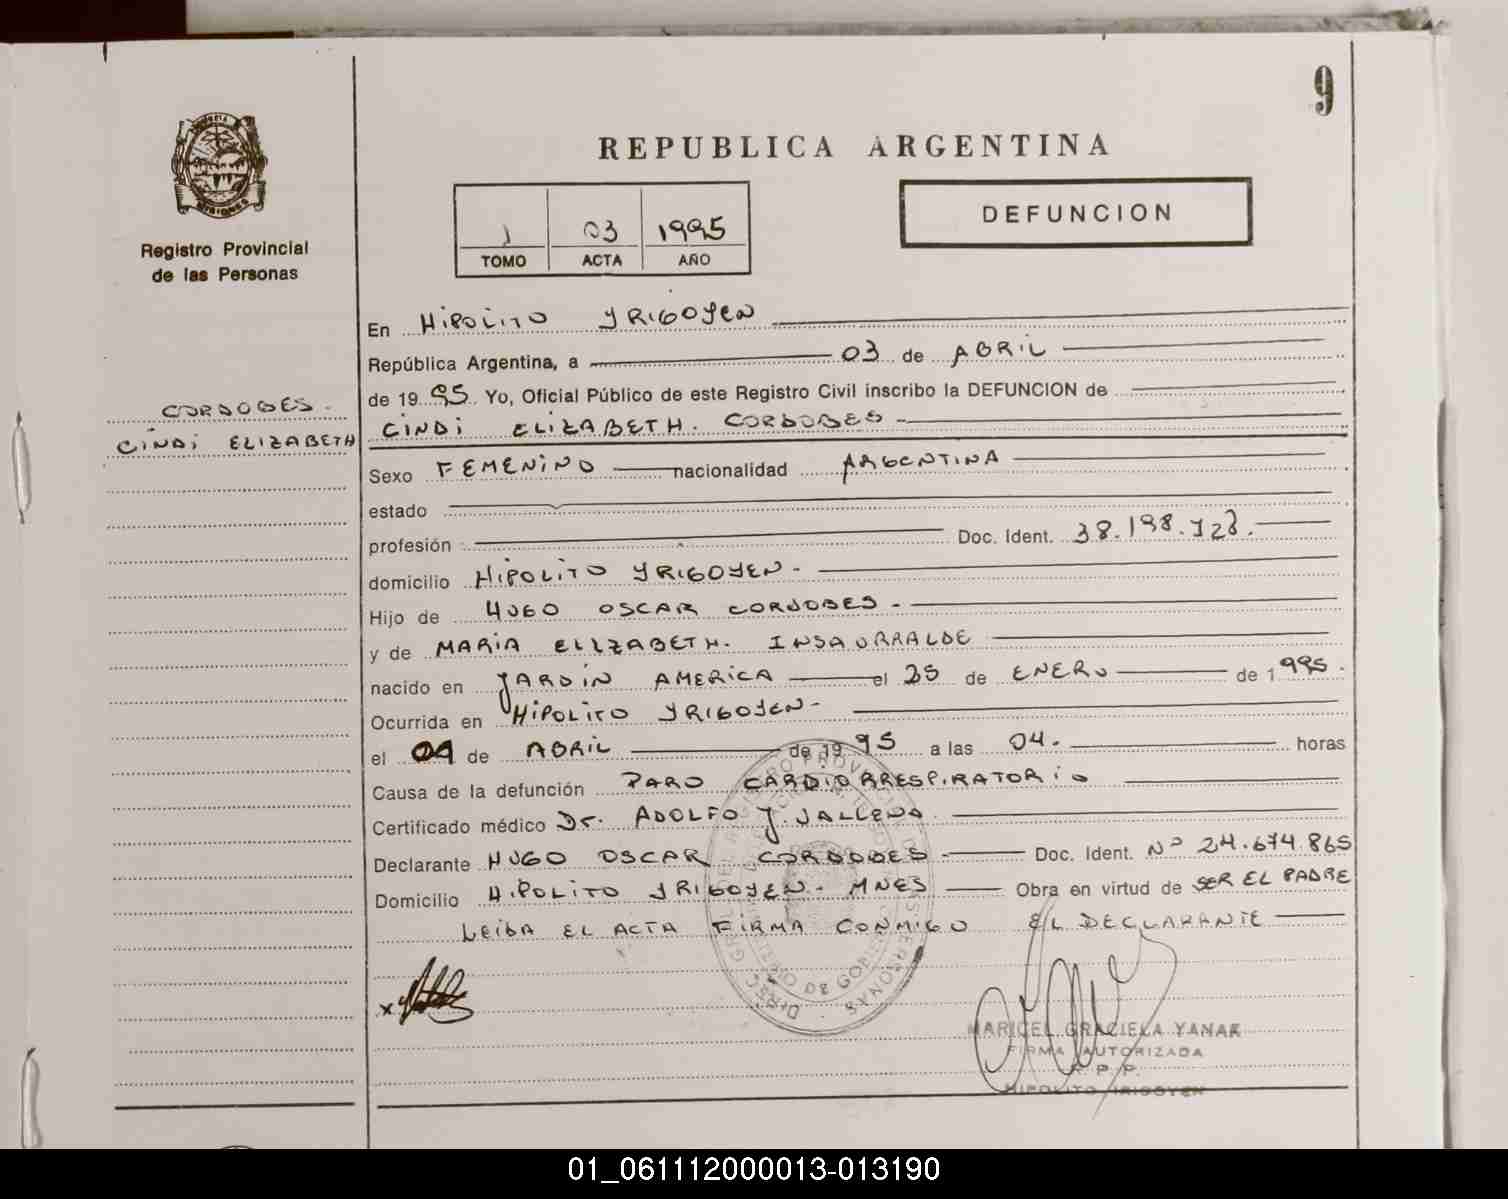 9
REPUBLICA ARGENTINA
MISIONES
Registro Provincial
de las Personas
1 03 1995
TOMO ACTA AÑO
DEFUNCION
En HIPOLITO YRIGOYEN
República Argentina, a 03 de ABRIL
de 1995 Yo, Oficial Público de este Registro Civil inscribo la DEFUNCION de
CORDOBES.
CINDI ELIZABETH
CINDI ELIZABETH. CORDOBES
Sexo FEMENINO nacionalidad ARGENTINA
estado
profesión Doc. Ident. 38.198.723.
domicilio HIPOLITO YRIGOYEN.
Hijo de HUGO OSCAR CORDOBES.
y de MARIA ELIZABETH. INSAURRALDE
nacido en JARDIN AMERICA el 25 de ENERO de 1995.
Ocurrida en HIPOLITO YRIGOYEN.
el de ABRIL de 1995 a las 04. horas
Causa de la defunción PARO CARDIORRESPIRATORIO
Certificado médico Dr. ADOLFO J. VALLEDO.
Declarante HUGO OSCAR CORDOBES Doc. Ident. Nº 24.674.865
Domicilio HIPOLITO YRIGOYEN. MNES Obra en virtud de SER EL PADRE
LEIDA EL ACTA FIRMA CONMIGO EL DECLARANTE
x
MARICEL GRACIELA YANAK
FIRMA AUTORIZADA
R.P.P.
HIPOLITO IRIGOYEN
01_061112000013-013190